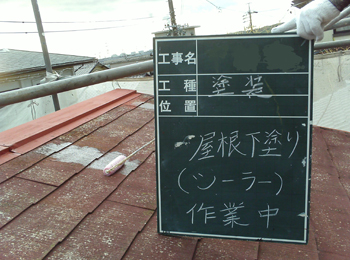 工事名
工種 塗装
位置
屋根下塗り
(シーラー)
作業中